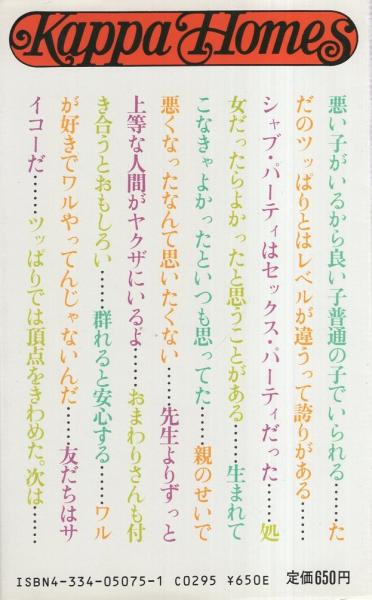 Kappa Homes
悪い子がいるから良い子普通の子でいられる……た
だのツッぱりとはレベルが違うって誇りがある……
シャブ・パーティはセックス・パーティだった……処
女だったらよかったと思うことがある……生まれて
こなきゃよかったといつも思ってた……親のせいで
悪くなったなんて思いたくない……先生よりずっと
上等な人間がヤクザにいるよ……おまわりさんも付
き合うとおもしろい……群れると安心する……ワル
が好きでワルやってんじゃないんだ……友だちはサ
イコーだ……ツッぱりでは頂点をきわめた。次は……
ISBN4-334-05075-1 C0295 ¥650E 定価650円